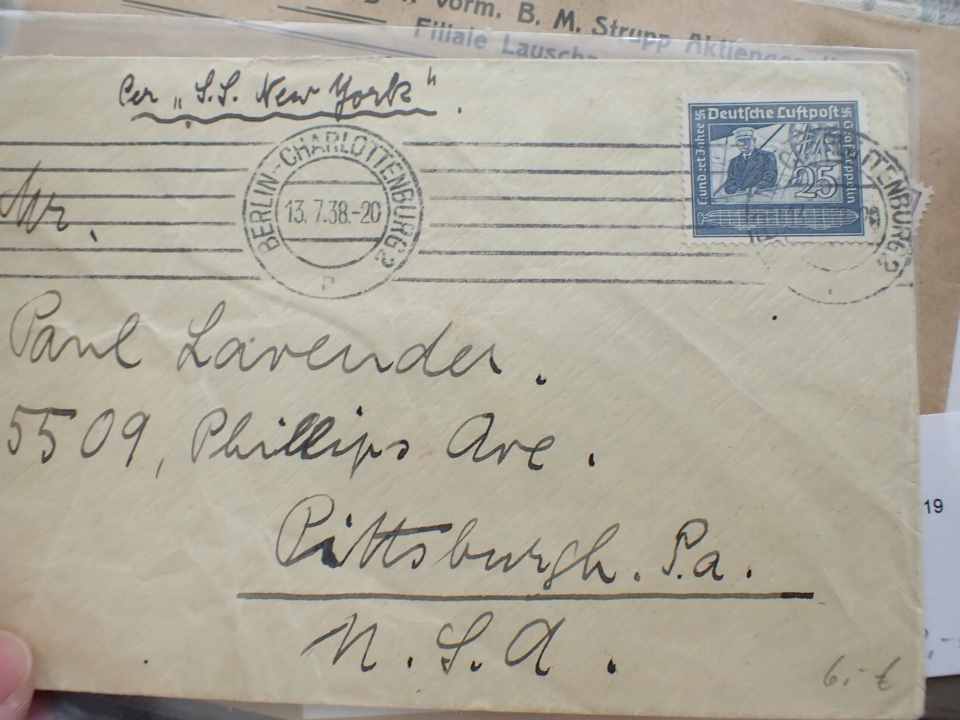 vorm. B. M. Strupp
Filiale Lauscha
Per „S.S. New York"
Deutsche Luftpost
Hundert Jahre
Graf Zeppelin
25
BERLIN-CHARLOTTENBURG 2
13.7.38.-20
Mr.
Paul Lavender.
5509, Phillips Ave.
Pittsburgh. Pa.
U.S.A.
19
6,-€